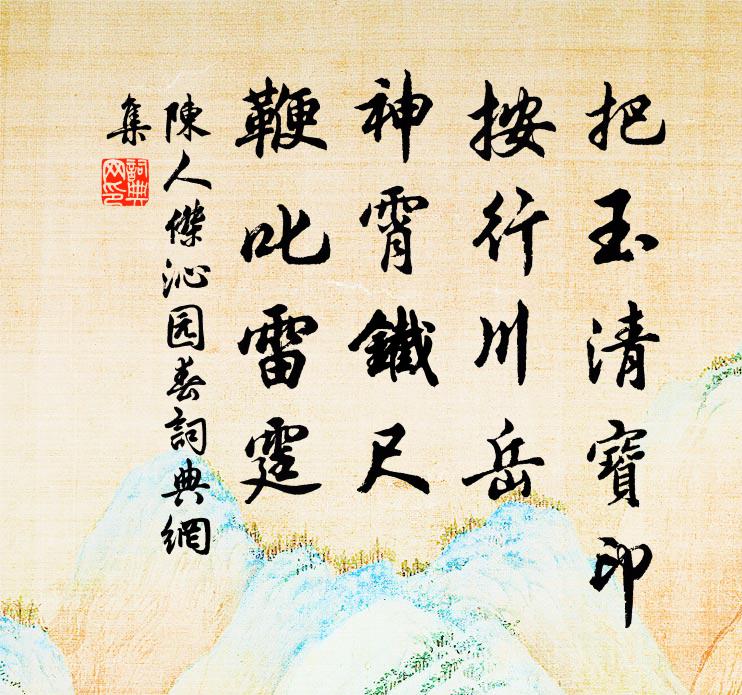 把玉清寶印
按行川岳
神霄鐵尺
鞭叱雷霆
陳人傑沁园春詞典網
集
詞典
网印